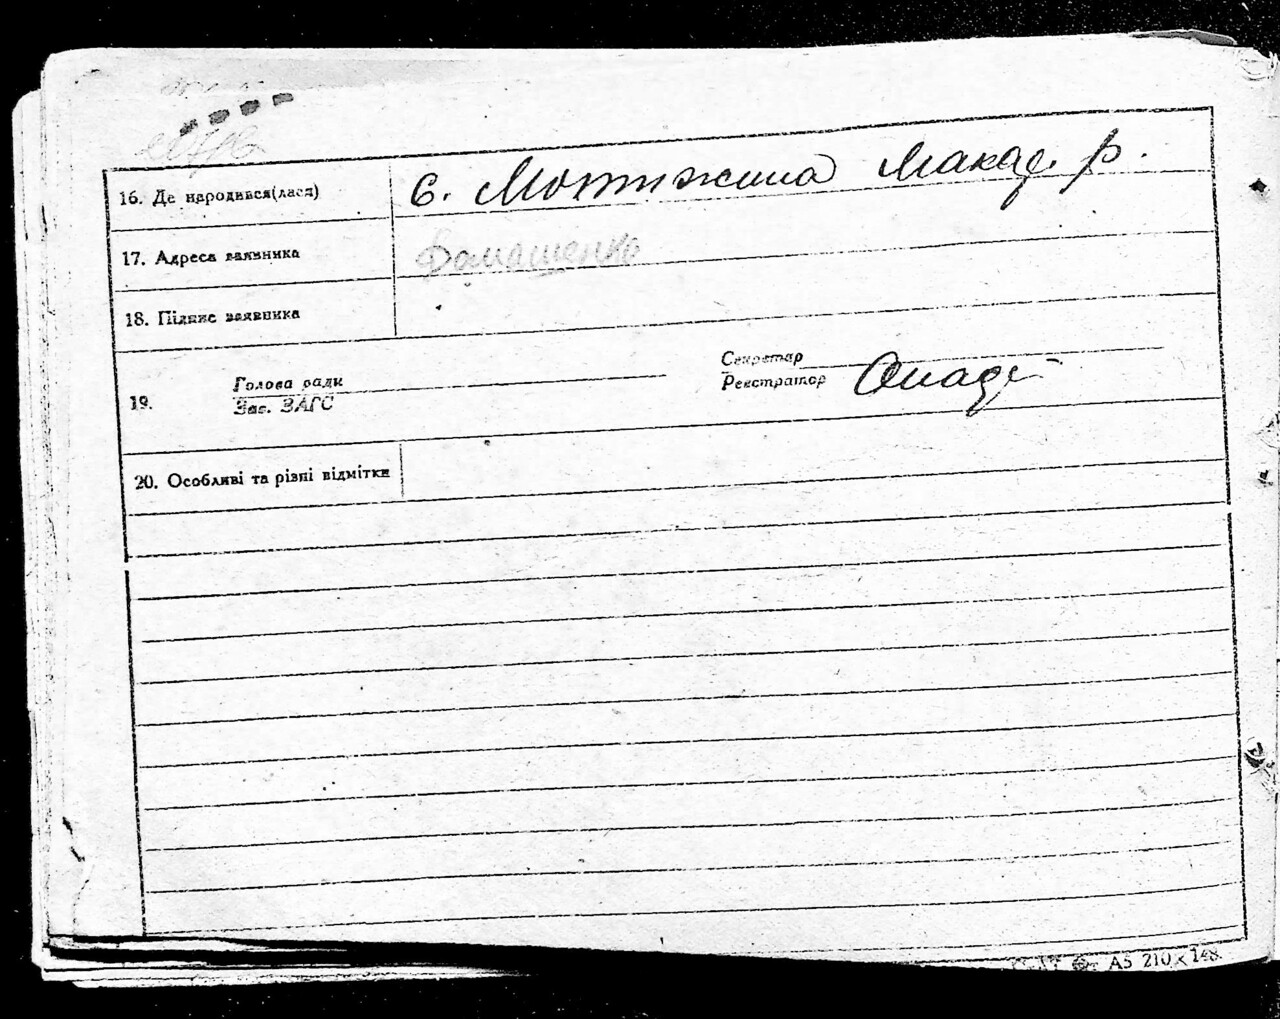 16. Де народився(лася) с. Мотижина Макар. р.
17. Адреса заявника Домашенко
18. Підпис заявника
19. Голова ради Секретар
Зав. ЗАГС Реєстратор
20. Особливі та різні відмітки
А5 210×148